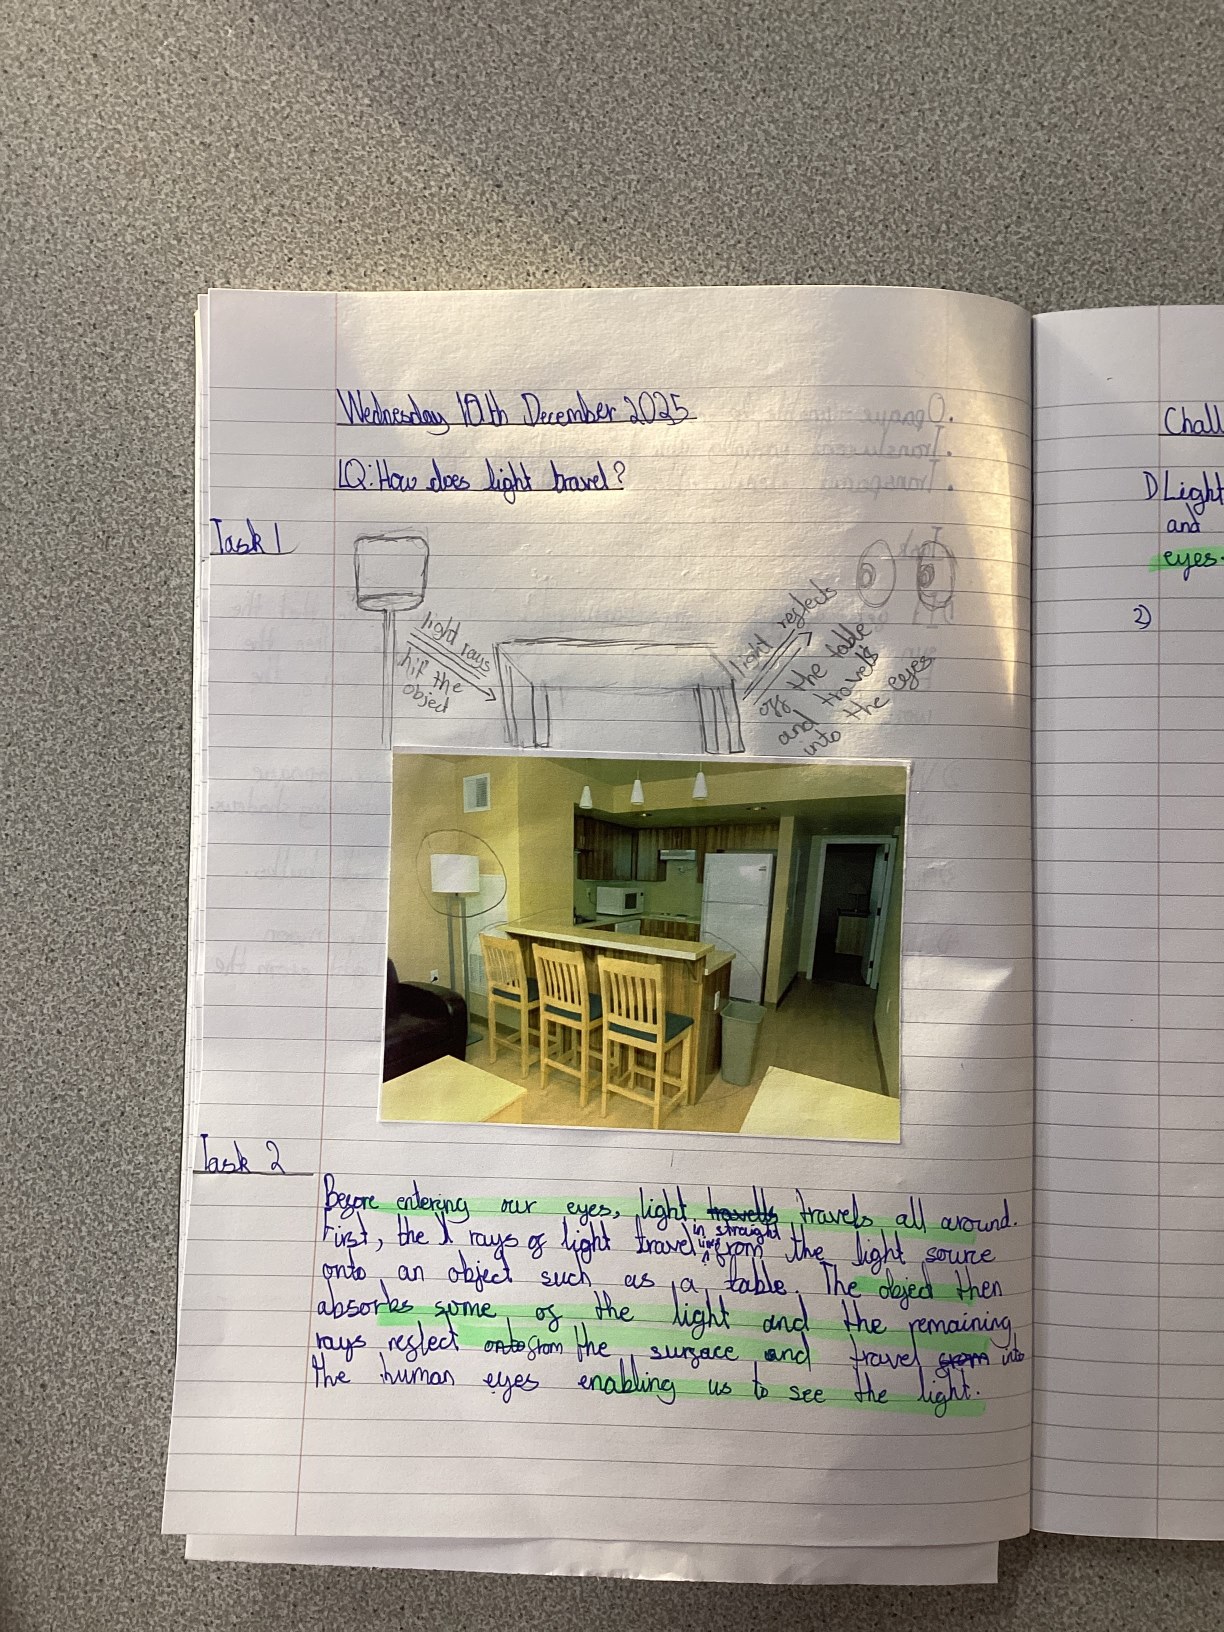 Wednesday 10th December 2025
LQ: How does light travel?
Task 1
light rays
hit the
object
light reflects
off the table
and travels
into the eyes
Task 2
Before entering our eyes, light travels all around.
First, the rays of light travel in straight lines from the light source
onto an object such as a table. The object then
absorbs some of the light and the remaining
rays reflect from the surface and travel into
the human eyes enabling us to see the light.
Chall
1) Light
and
eyes.
2)